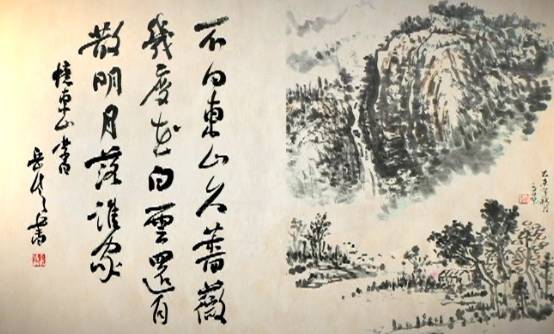 不向東山久薔薇
幾度花白雲還自
散明月落誰家
憶東山
書